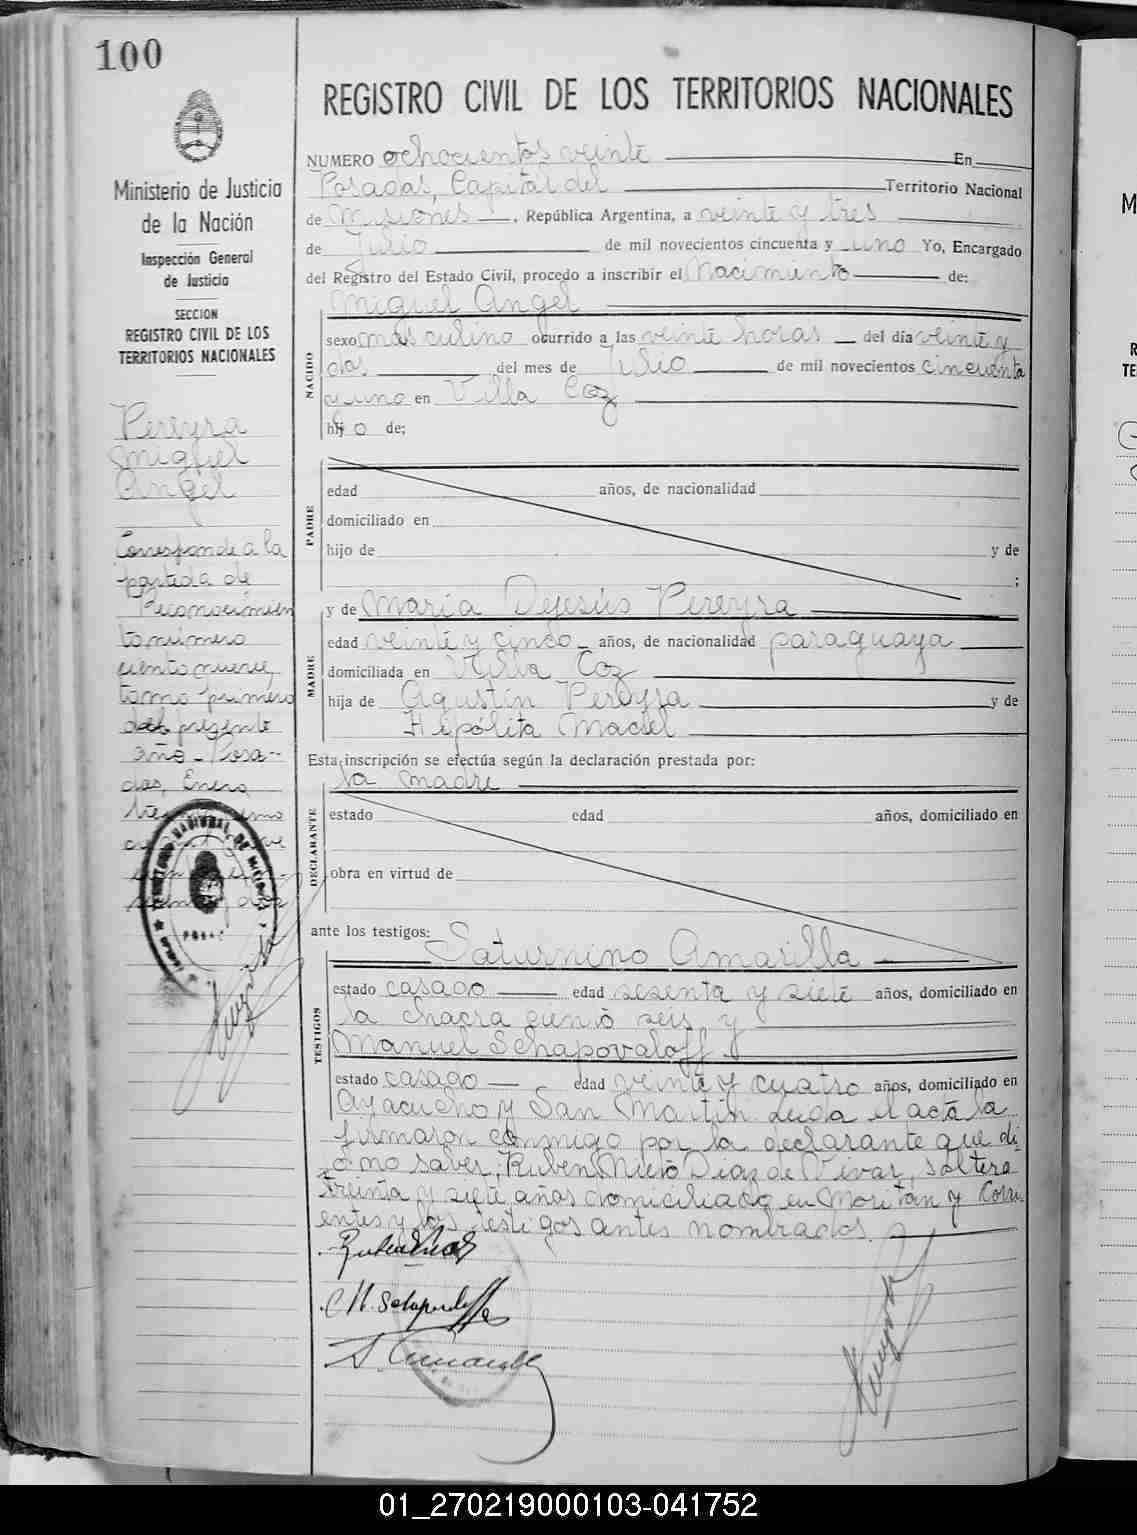 100
Ministerio de Justicia
de la Nación
Inspección General
de Justicia
SECCION
REGISTRO CIVIL DE LOS
TERRITORIOS NACIONALES
Pereyra
Miguel
Angel
Corresponde a la
partida de
Reconocimien
to número
ciento nueve,
tomo primero
del presente
año - Posa-
das, Enero
REGISTRO CIVIL DE LOS TERRITORIOS NACIONALES
NUMERO ochocientos veinte En
Posadas, Capital del Territorio Nacional
de Misiones, República Argentina, a veinte y tres
de Julio de mil novecientos cincuenta y uno Yo, Encargado
del Registro del Estado Civil, procedo a inscribir el Nacimiento de:
Miguel Angel
NACIDO
sexo masculino ocurrido a las veinte horas del día veinte y
dos del mes de Julio de mil novecientos cincuenta
y uno en Villa Coz
hijo de:
PADRE
edad años, de nacionalidad
domiciliado en
hijo de y de
;
MADRE
y de María Dejesús Pereyra
edad veinte y cinco años, de nacionalidad paraguaya
domiciliada en Villa Coz
hija de Agustín Pereyra y de
Hipólita Maciel
Esta inscripción se efectúa según la declaración prestada por:
la madre
DECLARANTE
estado edad años, domiciliado en
obra en virtud de
ante los testigos: Saturnino Amarilla
TESTIGOS
estado casado edad sesenta y siete años, domiciliado en
la chacra ciento seis y
Manuel Schapovaloff
estado casado edad veinte y cuatro años, domiciliado en
Ayacucho y San Martín. Leida el acta la
firmaron conmigo por la declarante que di
jo no saber; Ruben Nieto Diaz de Vivar, soltero
treinta y siete años domiciliado en y Corri
entes y los testigos antes nombrados.
01_270219000103-041752